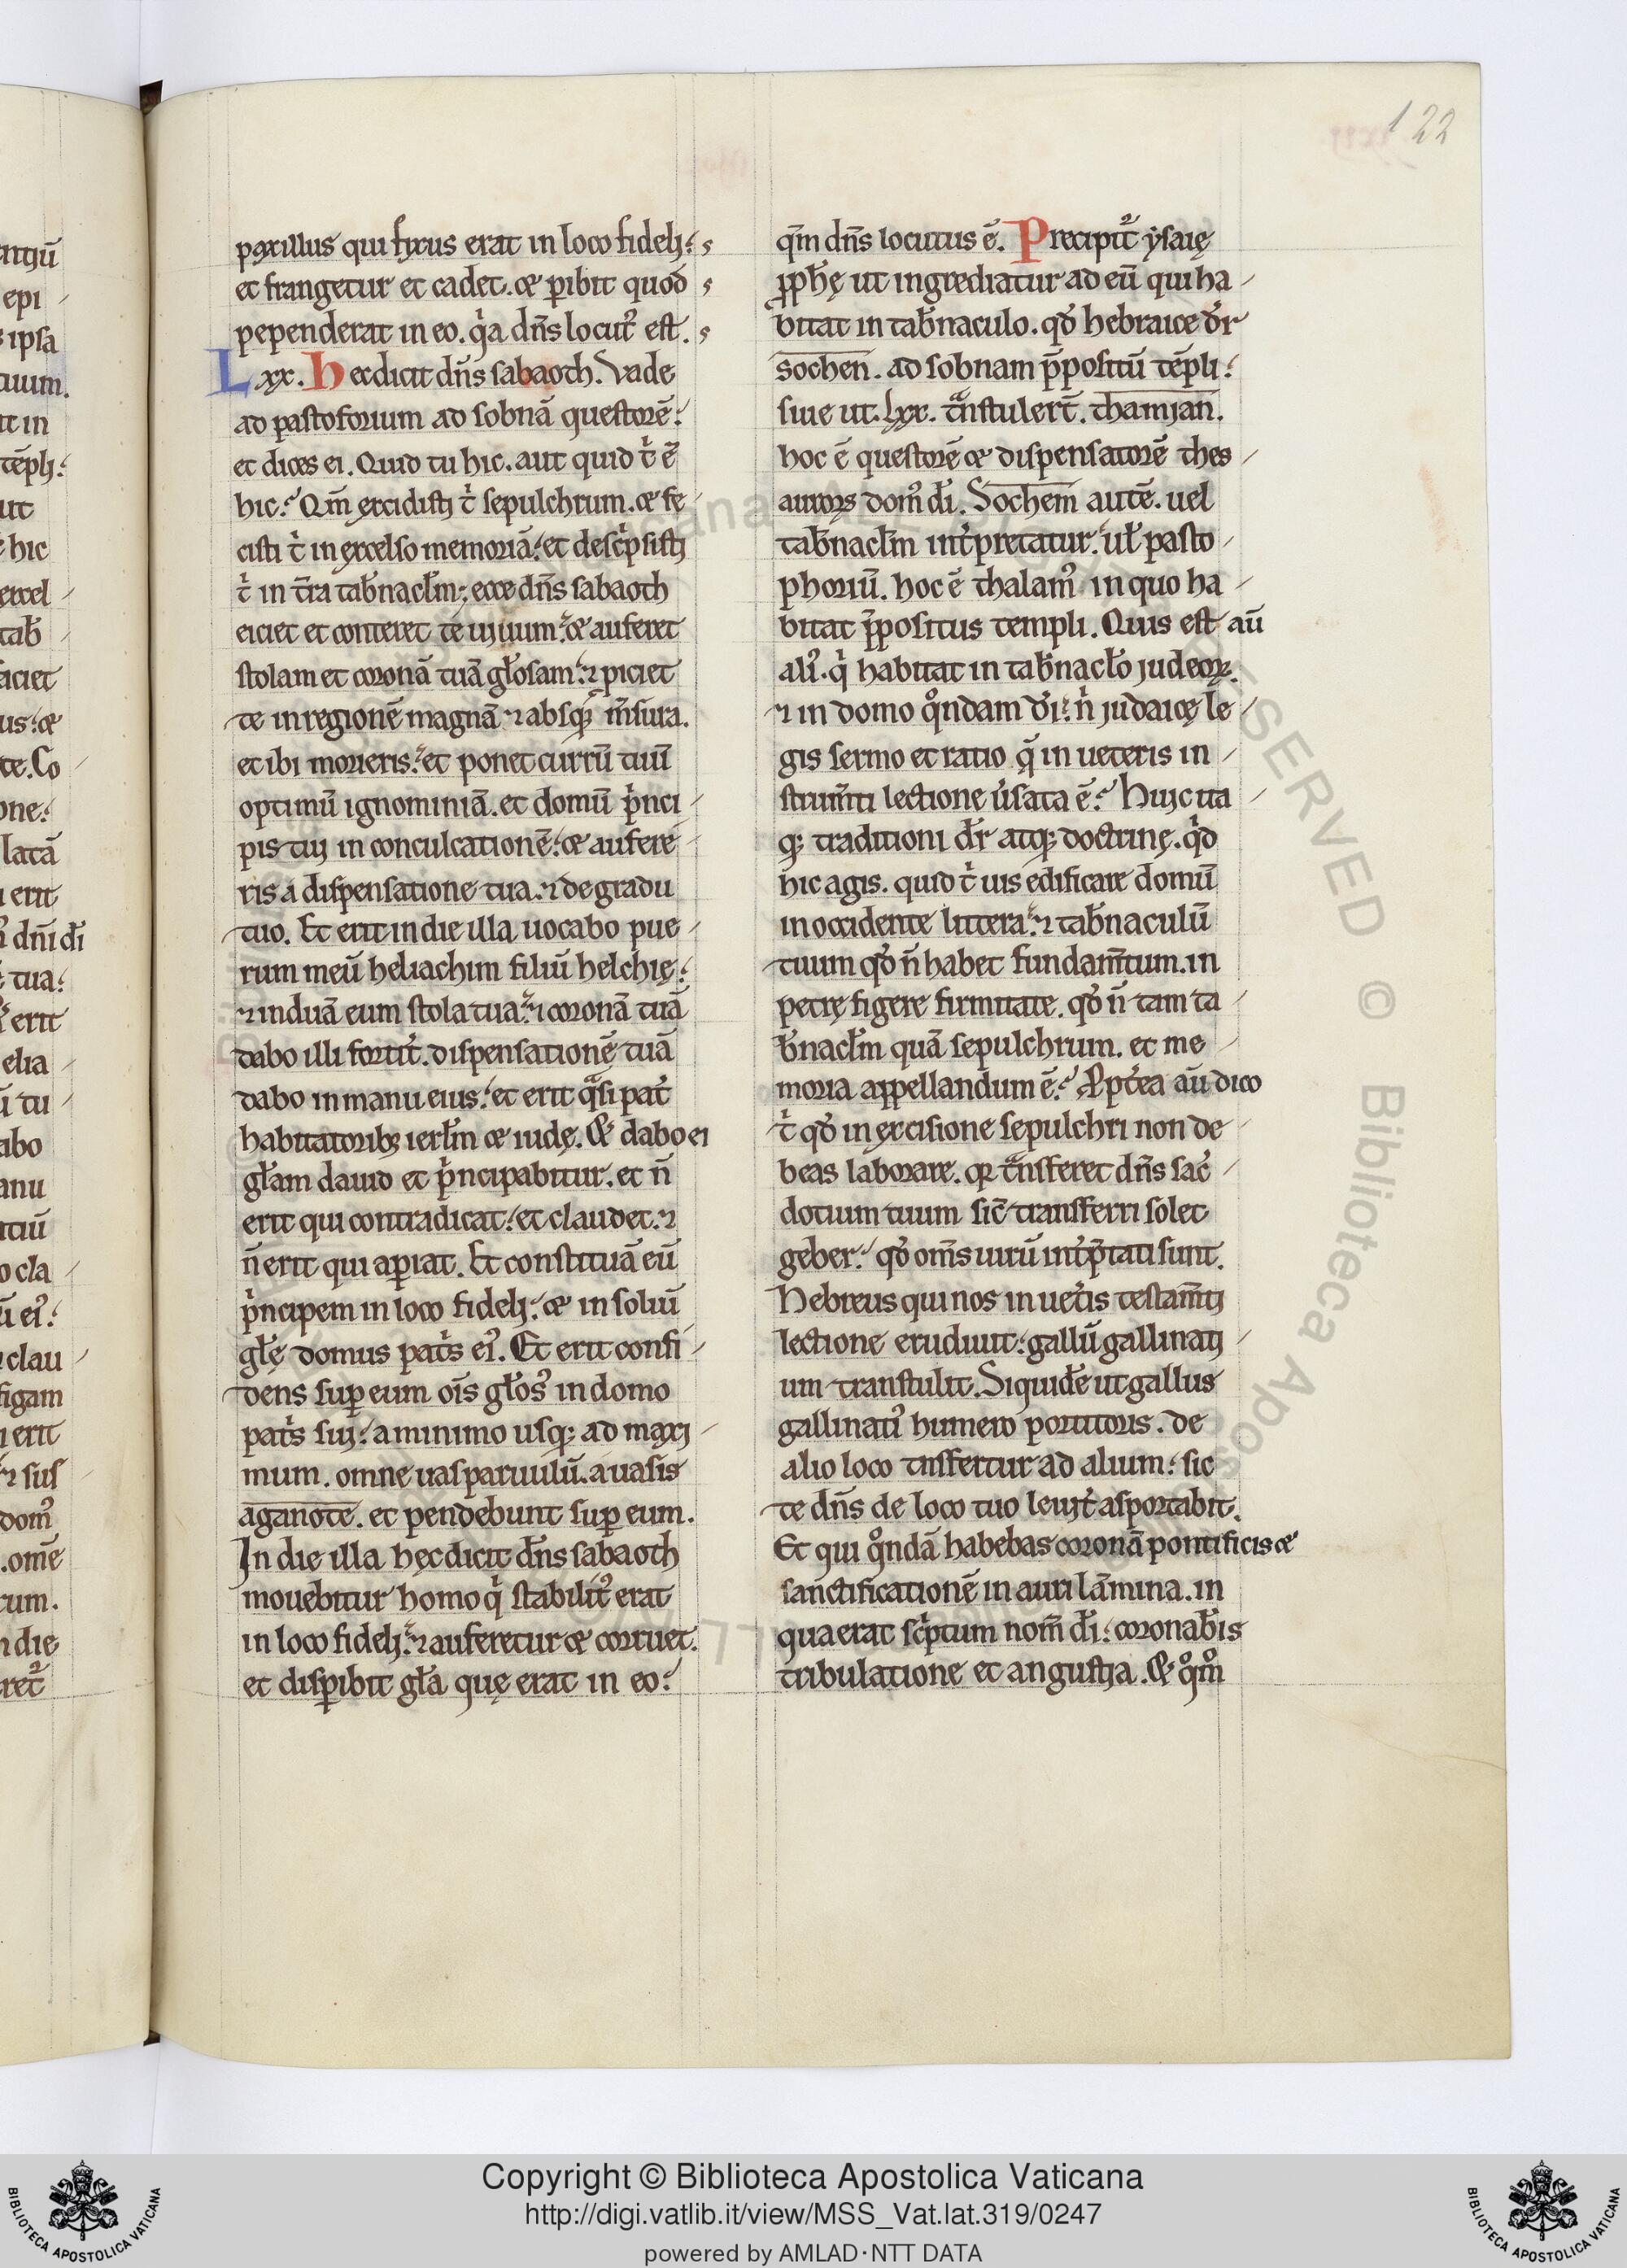 122
paxillus qui fixus erat in loco fidelj.
et frangetur et cadet. & p̱ibit quod
pependerat in eo. qͥa dn̄s locutꝰ est.
Lxx. Hec dicit dn̄s sabaoth. Vade
ad pastoforium ad sobnā questorē.
et dices ei. Quid tu hic. aut quid tͥ ē
hic? Qm̄ excidisti tͥ sepulchrum. & fe
cisti tͥ in excelso memoriā. et descͥpsisti
tͥ in tr̄a tab̄nacl̄m; ecce dn̄s sabaoth
eiciet et conteret te uirum. & auferet
stolam et coronā tuā gl̄osam. ⁊ ꝓiciet
te in regionē magnā ⁊ absq; m̄sura.
et ibi morieris. et ponet currū tuū
optimū ignominiā. et domū pͥnci
pis tui in conculcationē. & aufere
ris a dispensatione tua. ⁊ de gradu
tuo. Et erit in die illa uocabo pue
rum meū heliachim filiū helchię.
⁊ induā eum stola tua. ⁊ coronā tuā
dabo illi fortit̾. dispensationē tuā
dabo in manu eius. et erit qᷓsi pat̾
habitatorib; ierl̄m & iudę. & dabo ei
gl̄am dauid et pͥncipabitur. et n̄
erit qui contradicat. et claudet. ⁊
n̄ erit qui ap̱iat. Et constituā eū
pͥncipem in loco fidelj. & in soliū
gl̄ę domus patͥs eiꝰ. Et erit confi
dens sup̱ eum oīs gl̄osꝰ in domo
patͥs sui. a minimo usq; ad maxi
mum. omne uas paruulū. a uasis
aganote. et pendebunt sup̱ eum.
In die illa hęc dicit dn̄s sabaoth
mouebitur homo qͥ stabilitꝰ erat
in loco fidelj. ⁊ auferetur & corruet.
et disp̱ibit gl̄a quę erat in eo.
qm̄ dn̄s locutus ē. Precipit᷑ ẏsaię
ꝓph̄ę ut ingrediatur ad eū qui ha
bitat in tab̄naculo. qd̾ hebraice dr̄
sochen. ad sobnam p̄positū tēpli.
siue ut. lxx. tᷓnstulerт̄. thamian.
hoc ē questorē & dispensatorē thes
auroꝝ domꝰ dī. Sochem autē. uel
tab̄nacl̄m int̾pretatur. ul̄ pasto
phoriū. hoc ē thalamꝰ in quo ha
bitat p̄positus templi. Quis est aū
aliꝰ. qͥ habitat in tab̄nacl̄o judeoꝝ.
⁊ in domo qͦndam dī. nͥ judaicę le
gis sermo et ratio q̄ in ueteris in
strum̄ti lectione u̾sata ē? Huic ita
q; traditioni dr̄ atq; doctrinę. qͥd
hic agis. quid tͥ uis edificare domū
in occidente littera. ⁊ tab̄naculū
tuum qd̾ n̄ habet fundam̄tum. in
petrę figere firmitate. qd̾ n̄ tam ta
b̄nacl̄m quā sepulchrum. et me
moria appellandum ē? Ꝓpt̾ea aū dico
tͥ qd̾ in excisione sepulchri non de
beas laborare. qꝛ tᷓnsferet dn̄s sac̾
dotium tuum sic̄ transferri solet
geber. qd̾ om̄s uirū int̾p̄tati sunt.
Hebreus qui nos in uet̾is testam̄ti
lectione erudiuit. gallū gallinati
um transtulit. Siquidē ut gallus
gallinatiꝰ humero portitoris. de
alio loco tnsfertur ad alium. sic
te dn̄s de loco tuo leuit̾ asportabit.
Et qui qͦndā habebas coronā pontificis &
sanctificationē in auri lāmina. in
qua erat scͥptum nom̄ dī. coronab̄is
tribulatione et angustia. & qͦm̊
Copyright © Biblioteca Apostolica Vaticana
http://digi.vatlib.it/view/MSS_Vat.lat.319/0247
powered by AMLAD·NTT DATA
BIBLIOTECA APOSTOLICA VATICANA
BIBLIOTECA APOSTOLICA VATICANA